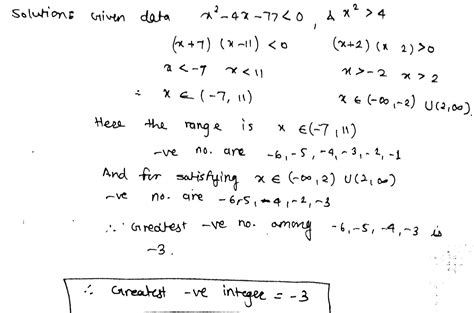 Solution: Given data x²-4x-77<0, & x²>4
(x+7) (x-11) <0 (x+2) (x 2)>0
x<-7 x<11 x>-2 x>2
∴ x ∈ (-7, 11) x ∈ (-∞,-2) ∪(2,∞)
Here the range is x ∈(-7,11)
-ve no. are -6,-5,-4,-3,-2,-1
And for satisfying x ∈ (-∞,2) ∪(2,∞)
-ve no. are -6,5,-4,-2,-3
∴ Greatest -ve no. among -6,-5,-4,-3 is
-3.
∴ Greatest -ve integer = -3